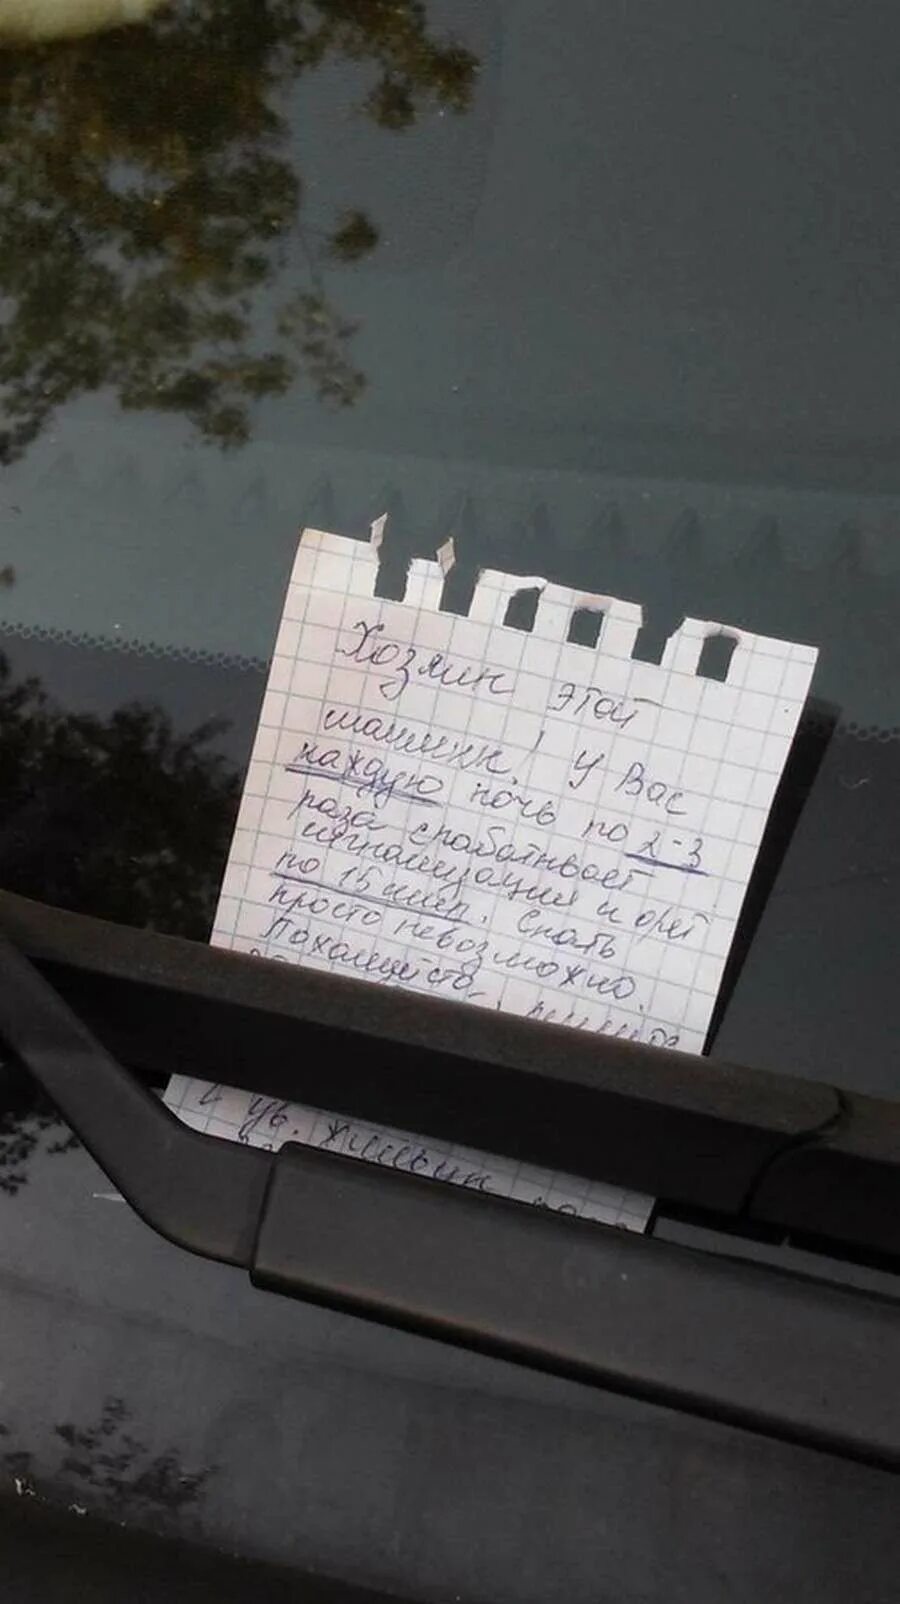 Хозяин этой
машины! У Вас
каждую ночь по 2-3
раза срабатывает
сигнализация и орёт
по 15 мин. Спать
просто невозможно.
Пожалуйста, решите
С ув. жильцы